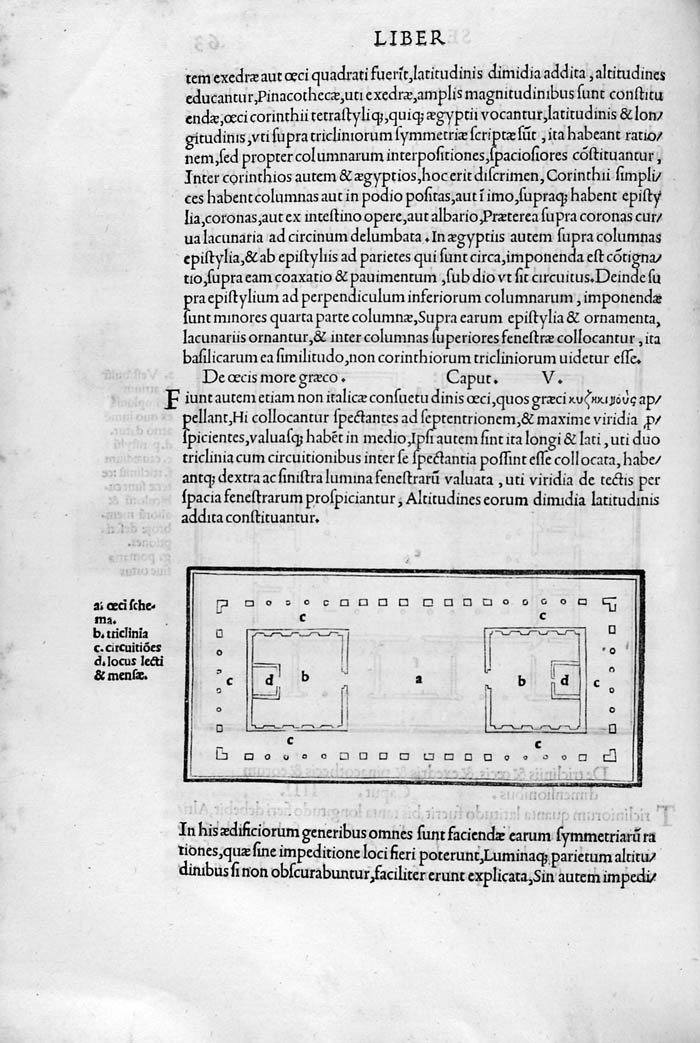 LIBER
tem exedræ aut œci quadrati fuerīt, latitudinis dimidia addita, altitudines
educantur, Pinacothecæ, uti exedræ, amplis magnitudinibus sunt constitu
endæ, œci corinthii tetrastyliq;, quiq; ægyptii vocantur, latitudinis & lon/
gitudinis, vti supra tricliniorum symmetriæ scriptæ sūt, ita habeant ratio/
nem, sed propter columnarum interpositiones, spaciosiores cōstituantur,
Inter corinthios autem & ægyptios, hoc erit discrimen, Corinthii simpli/
ces habent columnas aut in podio positas, aut ī imo, supraq; habent episty
lia, coronas, aut ex intestino opere, aut albario, Præterea supra coronas cur/
ua lacunaria ad circinum delumbata. In ægyptiis autem supra columnas
epistylia, & ab epistyliis ad parietes qui sunt circa, imponenda est cōtigna/
tio, supra eam coaxatio & pauimentum, sub dio vt sit circuitus. Deinde su
pra epistylium ad perpendiculum inferiorum columnarum, imponendæ
sunt minores quarta parte columnæ, Supra earum epistylia & ornamenta,
lacunariis ornantur, & inter columnas superiores fenestræ collocantur, ita
basilicarum ea similitudo, non corinthiorum tricliniorum uidetur esse.
De œcis more græco. Caput. V.
Fiunt autem etiam non italicæ consuetudinis œci, quos græci κυζικηνοὺς ap/
pellant, Hi collocantur spectantes ad septentrionem, & maxime viridia ꝓ/
spicientes, valuasq; habēt in medio, Ipsi autem sint ita longi & lati, uti duo
triclinia cum circuitionibus inter se spectantia possint esse collocata, habe/
antq; dextra ac sinistra lumina fenestrarū valuata, uti viridia de tectis per
spacia fenestrarum prospiciantur, Altitudines eorum dimidia latitudinis
addita constituantur.
a. œci sche/
ma.
b. triclinia
c. circuitiōes
d. locus lecti
& mensæ.
c c
c d b a b d c
c c
In his ædificiorum generibus omnes sunt faciendæ earum symmetriarū ra
tiones, quæ sine impeditione loci fieri poterunt, Luminaq; parietum altitu/
dinibus si non obscurabuntur, faciliter erunt explicata, Sin autem impedi/